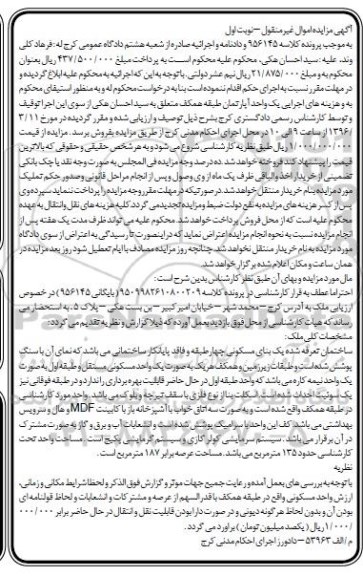 آگهی مزایده اموال غیر منقول – نوبت اول
به موجب پرونده کلاسه ۹۵۶۱۴۵ و دادنامه و اجرائیه صادره از شعبه هشتم دادگاه عمومی کرج له: فرهاد کلی
وند، علیه: سید احسان هکی، محکوم علیه محکوم است به پرداخت مبلغ ۴۳۷/۵۰۰/۰۰۰ ریال بعنوان
محکوم به و مبلغ ۲۱/۸۷۵/۰۰۰ ریال نیم عشر دولتی. باتوجه به این که اجرائیه به محکوم علیه ابلاغ گردیده و
در مهلت مقرر نسبت به اجرای حکم اقدام ننموده است بنا به درخواست محکوم له و به منظور استیفای محکوم
به و هزینه های اجرایی یک واحد آپارتمان طبقه همکف متعلق به سید احسان هکی از سوی این اجرا توقیف
و توسط کارشناس رسمی دادگستری کرج بشرح ذیل توصیف و ارزیابی شده و مقرر گردیده در مورخ ۳/۱۱/
۱۳۹۶ از ساعت ۹ الی ۱۰ در محل اجرای احکام مدنی کرج از طریق مزایده بفروش برسد. مزایده از قیمت
۱/۰۰۰/۰۰۰/۰۰۰ ریال طبق نظریه کارشناسی شروع می شود و به هر شخص حقیقی و حقوقی که بالاترین
قیمت را پیشنهاد کند فروخته خواهد شد. ده درصد وجه مزایده فی المجلس به صورت وجه نقد یا چک بانکی
تضمینی از خریدار اخذ و الباقی ظرف یک ماه از وی وصول و پس از انجام مراحل قانونی و صدور حکم تملیک
مورد مزایده بنام خریدار منتقل خواهد شد. در صورتیکه در مهلت مقرر وجه مزایده را پرداخت ننماید سپرده وی
پس از کسر هزینه های مزایده به نفع دولت ضبط و مزایده تجدید می گردد. کلیه هزینه های نقل و انتقال به عهده
محکوم علیه است که از محل فروش پرداخت خواهد شد. محکوم علیه می تواند ظرف مدت یک هفته پس از
انجام مزایده نسبت به نحوه انجام مزایده اعتراض نماید که در اینصورت تا رسیدگی به اعتراض از سوی دادگاه
مورد مزایده به نام خریدار منتقل نخواهد شد. چنانچه روز مزایده مصادف با ایام تعطیل شود روز بعد مزایده در
همان ساعت و مکان اعلام شده برگزار خواهد شد.
مال مورد مزایده و بهای آن طبق نظر کارشناس بدین شرح است:
احتراما عطف به قرار کارشناسی در پرونده کلاسه ۹۵۰۹۹۸۲۶۱۰۸۰۰۲۰۹ (بایگانی ۹۵۶۱۴۵) در خصوص
ارزیابی ملک به آدرس کرج – محمد شهر – خیابان امیر کبیر – بن بست هکی – پلاک ۵، به استحضار می
رساند که هیات کارشناسی از محل فوق بازدید بعمل آورده که ذیلا گزارش و نظریه تقدیم می گردد:
مشخصات کلی ملک:
ساختمان تعرفه شده یک بنای مسکونی چهار طبقه و فاقد پایانکار ساختمانی می باشد که نمای آن با سنگ
پوشش شده است و طبقات زیرزمین و همکف هر یک به صورت یک واحد مسکونی مستقل و طبقه اول به صورت
یک واحد نیمه کاره می باشد که واحد طبقه اول در حال حاضر قابلیت بهره برداری را ندارد و در طبقه فوقانی نیز
یک سوئیت احداث شده است. اسکلت بنا از نوع فلزی با سقف تیرچه و بلوک می باشد. واحد مورد کارشناسی
در طبقه همکف واقع شده است و به صورت سه اتاق خواب با آشپزخانه باز با کابینت MDF و هال و سرویس
بهداشتی می باشد. کف این واحد با سرامیک پوشش شده است و انشعابات آب و برق و گاز به صورت مشترک
در آن برقرار می باشد. سیستم سرمایشی کولر گازی و سیستم گرمایشی پکیج است. مساحت واحد تحت
کارشناسی حدود ۱۳۵ مترمربع می باشد. مساحت عرصه برابر ۱۸۷ مترمربع است.
نظریه
با توجه به بررسی های بعمل آمده و رعایت جمیع جهات موثر و گزارش فوق الذکر و لحاظ شرایط مکانی و زمانی،
ارزش واحد مسکونی واقع در طبقه همکف با قدرالسهم از عرصه و مشترکات و انشعابات و لحاظ قولنامه ای
بودن آن و بدون لحاظ هر گونه دیونی و در صورت دارا بودن قابلیت نقل و انتقال در حال حاضر برابر ۰۰۰/۰۰۰
/۰۰۰/۱ ریال (یکصد میلیون تومان) برآورد می گردد.
م/الف ۵۳۹۶۳ – دادورز اجرای احکام مدنی کرج